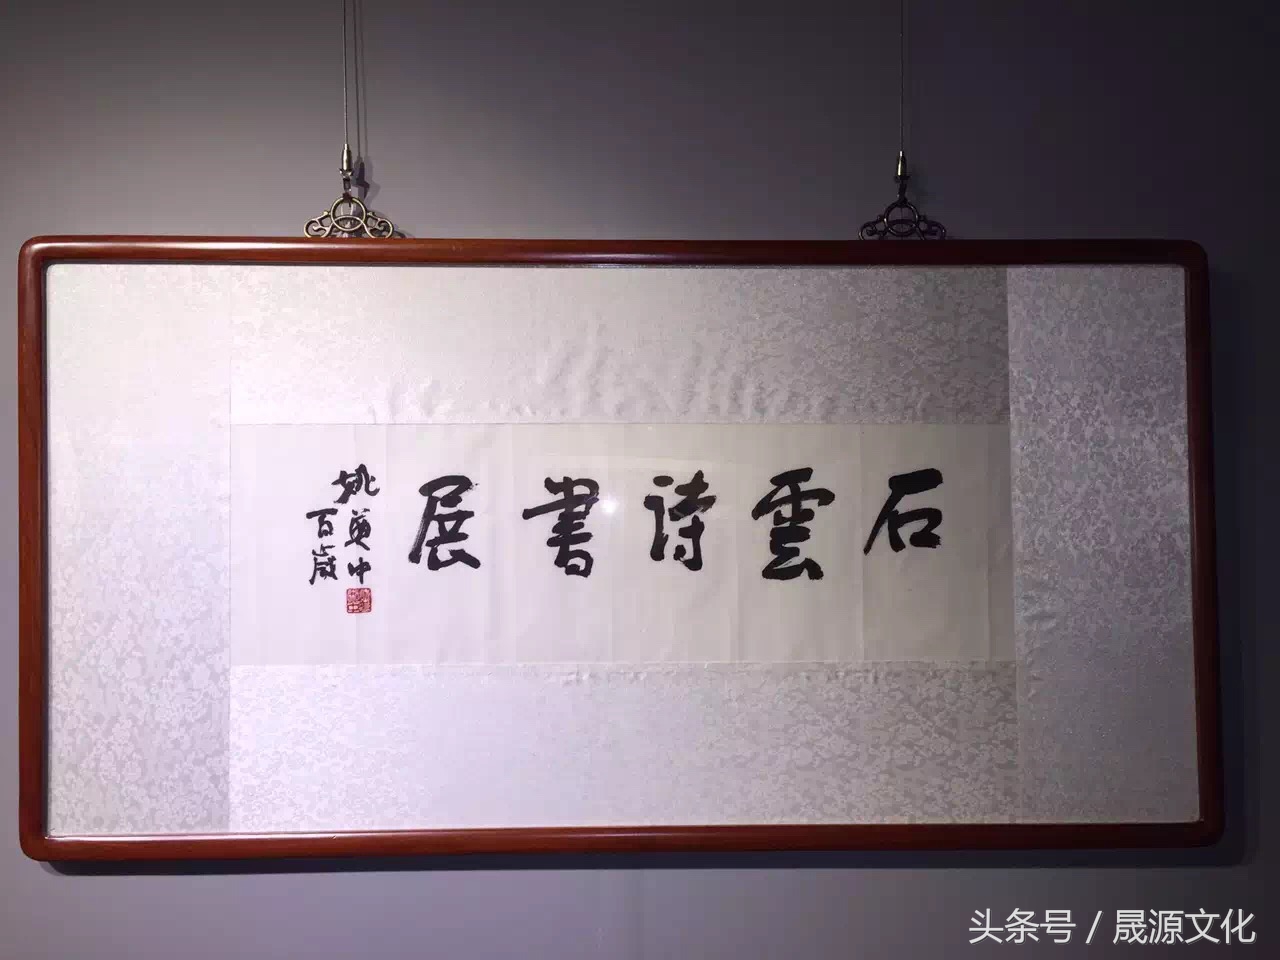 石雲诗書展
姚奠中
百歲
头条号 / 晟源文化